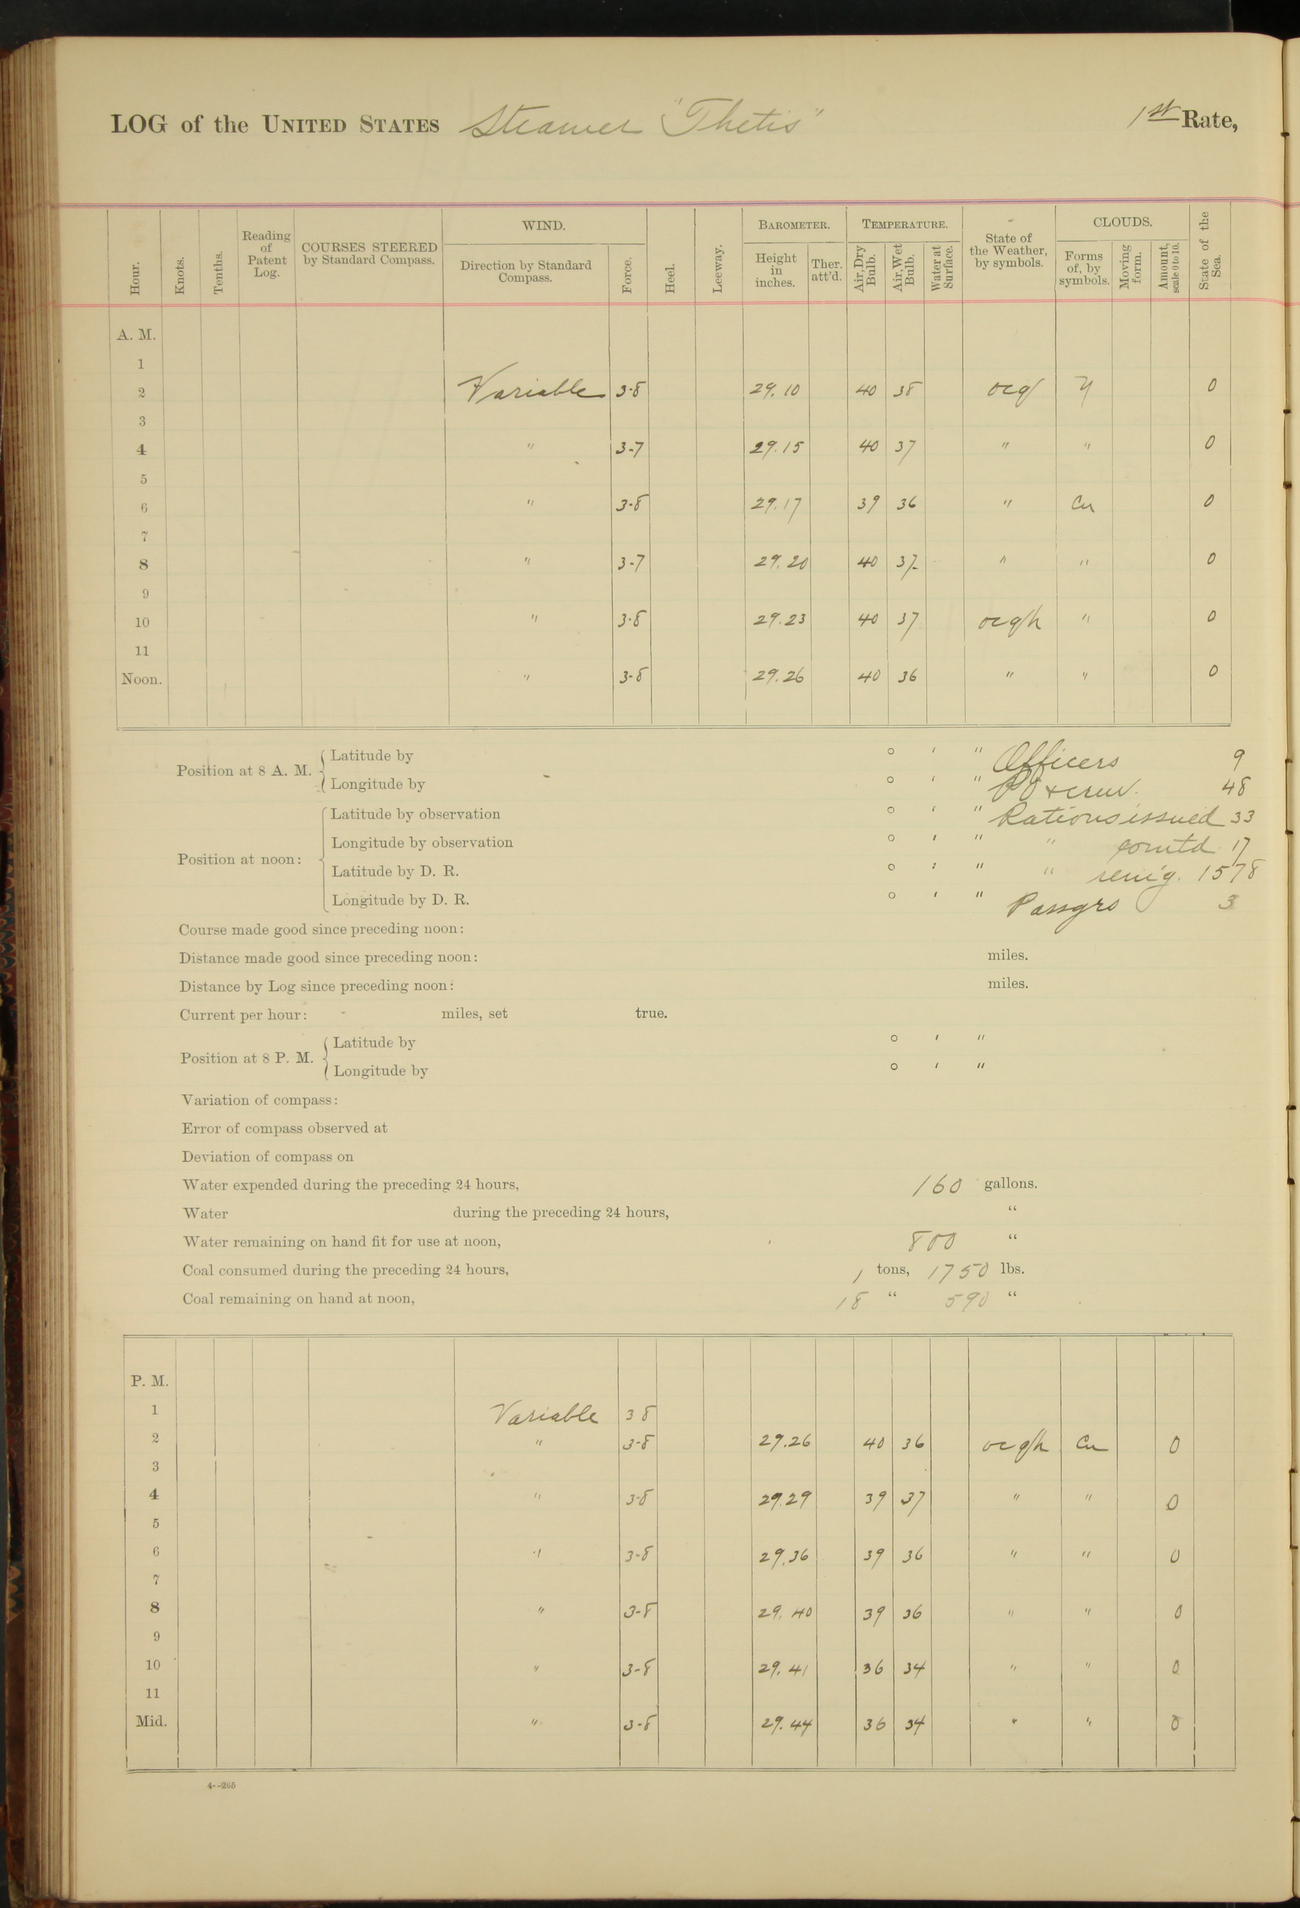 LOG of the UNITED STATES Steamer "Thetis" 1st Rate,
Hour. Knots. Tenths. Reading of Patent Log. COURSES STEERED by Standard Compass. WIND. Direction by Standard Compass. Force. Heel. Leeway. BAROMETER. Height in inches. Ther. att'd. TEMPERATURE. Air, Dry Bulb. Air, Wet Bulb. Water at Surface. State of the Weather, by symbols. CLOUDS. Forms of, by symbols. Moving form. Amount, scale 0 to 10. State of the Sea.
A. M.
1
2 Variable 3-8 29.10 40 38 ocq 0
3
4 " 3-7 29.15 40 37 " " 0
5
6 " 3-8 29.17 39 36 " Cu 0
7
8 " 3-7 29.20 40 37 " " 0
9
10 " 3-8 29.23 40 37 ocqh " 0
11
Noon. " 3-8 29.26 40 36 " " 0
Position at 8 A. M. { Latitude by ° ' " Officers 9
Longitude by ° ' " PO & crew. 48
Position at noon: { Latitude by observation ° ' " Rations issued 33
Longitude by observation ° ' " " comtd 17
Latitude by D. R. ° ' " " rem'g. 1578
Longitude by D. R. ° ' " Passgrs 3
Course made good since preceding noon:
Distance made good since preceding noon: miles.
Distance by Log since preceding noon: miles.
Current per hour: miles, set true.
Position at 8 P. M. { Latitude by ° ' "
Longitude by ° ' "
Variation of compass:
Error of compass observed at
Deviation of compass on
Water expended during the preceding 24 hours, 160 gallons.
Water during the preceding 24 hours, "
Water remaining on hand fit for use at noon, 800 "
Coal consumed during the preceding 24 hours, 1 tons, 1750 lbs.
Coal remaining on hand at noon, 18 " 590 "
P. M.
1 Variable 3 8
2 " 3-8 29.26 40 36 ocqh Cu 0
3
4 " 3-8 29.29 39 37 " " 0
5
6 " 3-8 29.36 39 36 " " 0
7
8 " 3-8 29.40 39 36 " " 0
9
10 " 3-8 29.41 36 34 " " 0
11
Mid. " 3-8 29.44 36 34 " " 0
4--265